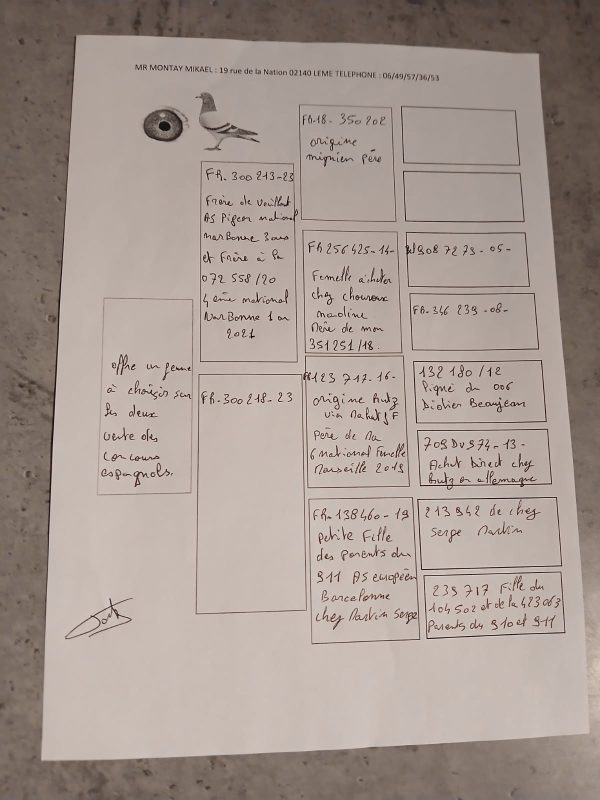 MR MONTAY MIKAEL : 19 rue de la Nation 02140 LEME TELEPHONE : 06/49/57/36/53
offre un jeune
à choisir sur
les deux
vente des
concours
espagnols.
FR. 300 213-23
Frère de
AS Pigeon national
Narbonne 3 ans
et Frère à la
072 558/20
4 eme national
Narbonne 1 an
2021
FR-300 218-23
FR-18-350 202
origine
mignien père
FR 256 425-14-
Femelle acheter
chez
Mère de mon
351251/18.
FR 123 717-16-
origine Brutz
via
Père de ma
6 national Femelle
Marseille 2019
FR-138460-19
petite Fille
des parents du
911 AS européen
Barcelonne
chez Martin Serge
908 7273-05-
FR-346 239-08-
132 180/12
du 006
Didier Beaujean
709 DV 974-13-
Achat Direct chez
Brutz en allemagne
213 942 de chez
Serge Martin
239 717 Fille du
104 502 et de la 423 063
Parents du 910 et 911